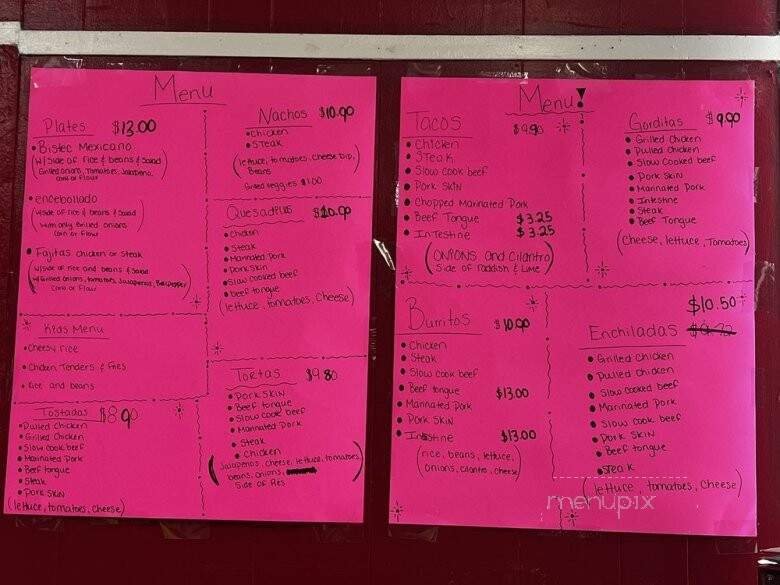 Menu
Plates $13.00
• Bistec Mexicano
(w/ side of rice & beans & Salad
Grilled onions, Tomatoes, Jalapeno,
Corn or Flour)
• encebollado
(w/side of rice & beans & Salad
with only Grilled onions
Corn or Flour)
• Fajitas chicken or steak
(w/side of rice and beans & Salad
w/ Grilled onions, tomatoes, Jalapenos, Bellpepper
Corn or Flour)
Kids Menu
• Cheesy rice
• Chicken Tenders & Fries
• Rice and beans
Tostadas $8.90
• Pulled Chicken
• Grilled Chicken
• Slow cook beef
• Marinated Pork
• Beef tongue
• Steak
• Pork Skin
(lettuce, tomatoes, cheese)
Nachos $10.90
• Chicken
• Steak
(lettuce, tomatoes, cheese dip,
Beans
Grilled veggies $1.00
Quesadillas $10.90
• Chicken
• Steak
• Marinated Pork
• Pork Skin
• Slow cooked beef
• beef tongue
(lettuce, tomatoes, cheese)
Tortas $9.80
• Pork Skin
• Beef tongue
• Slow cook beef
• Marinated Pork
• Steak
• Chicken
(Jalapenos, cheese, lettuce, tomatoes,
beans, onions,
Side of Res)
Menu!
Tacos $9.90
• Chicken
• Steak
• Slow cook beef
• Pork Skin
• Chopped Marinated Pork
• Beef Tongue $3.25
• Intestine $3.25
(Onions and Cilantro)
Side of raddish & Lime
Burritos $10.90
• Chicken
• Steak
• Slow cook beef
• Beef tongue $13.00
• Marinated Pork
• Pork Skin
• Intestine $13.00
(rice, beans, lettuce,
onions, cilantro, cheese)
Gorditas $9.90
• Grilled Chicken
• Pulled Chicken
• Slow Cooked beef
• Pork Skin
• Marinated Pork
• Intestine
• Steak
• Beef Tongue
(Cheese, lettuce, Tomatoes)
$10.50
Enchiladas
• Grilled Chicken
• Pulled Chicken
• Slow cooked beef
• Marinated Pork
• Slow cook beef
• Pork Skin
• Beef tongue
• Steak
(lettuce, tomatoes, cheese)
menupix